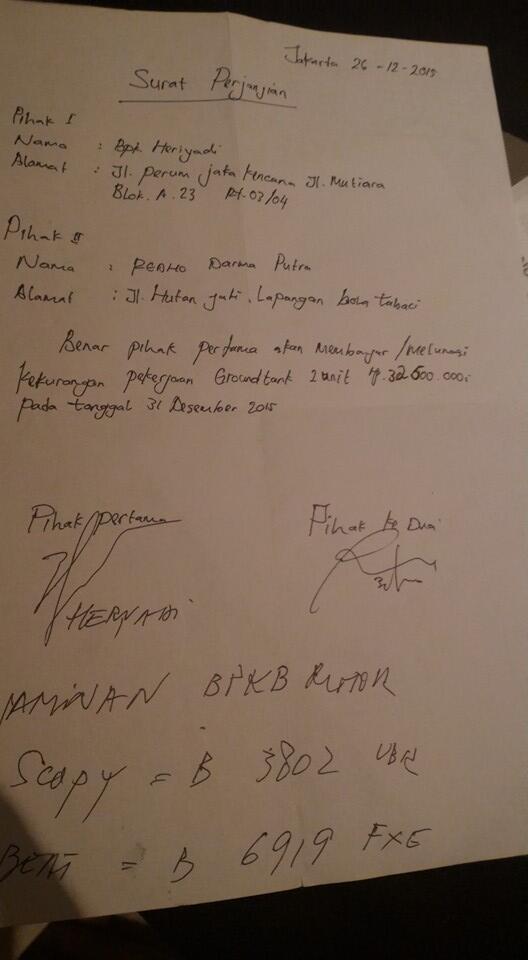 Jakarta 26-12-2015
Surat Perjanjian
Pihak I
Nama : Bpk. Heriyadi
Alamat : Jl. perum jata kencana Jl. Mutiara
Blok. A. 23 Rt. 03/04
Pihak II
Nama : REDHO Darma Putra
Alamat : Jl. Hutan jati. Lapangan bola tabaci
Benar pihak pertama akan Membayar/Melunasi
Kekurangan pekerjaan Groundtank 2 unit Rp. 32.500.000;
pada tanggal 31 Desember 2015
Pihak pertama Pihak ke Dua
HERYADI
JAMINAN BPKB
Scopy = B 3802
= B 6919 FXE